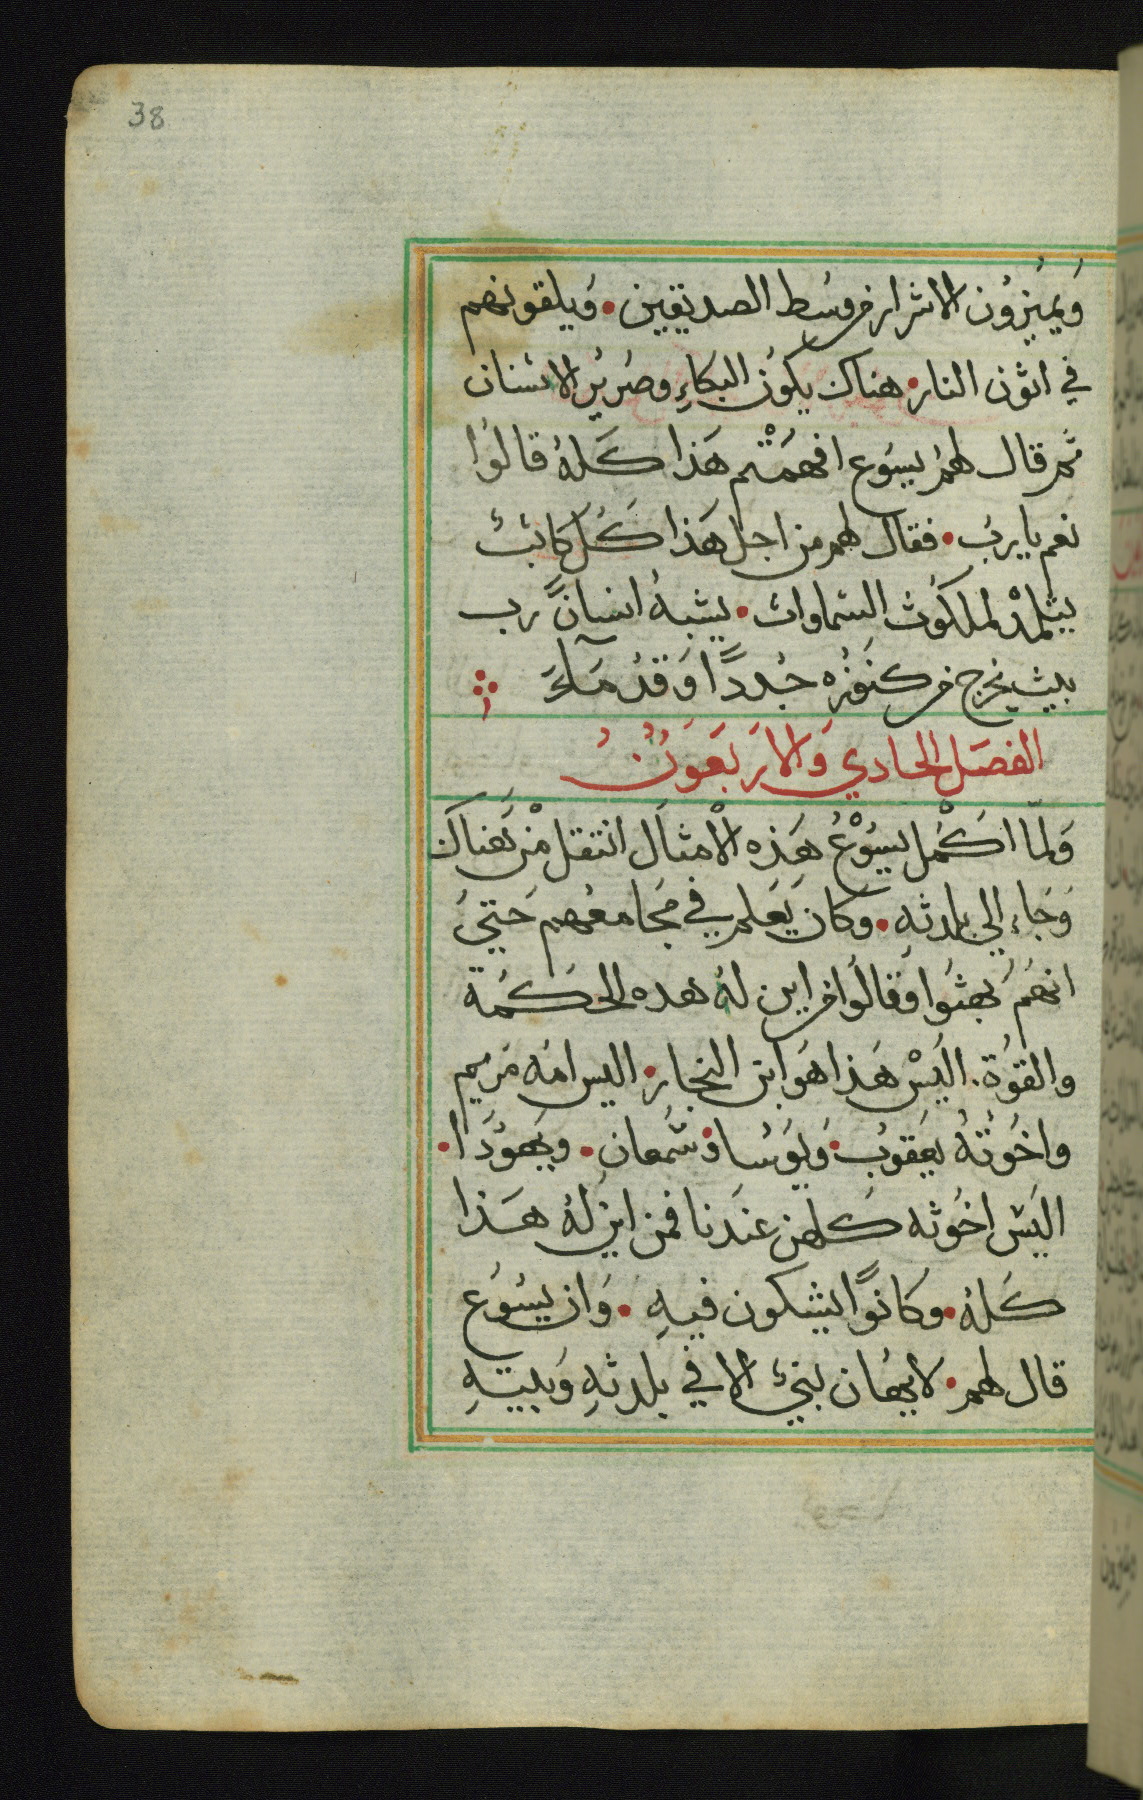 38
وَيميَزوُن الاشرار من وسَط الصديقين • وَيلقونهم
في اثون النار • هناك يكوُن البكاءِ وصَرير الاسنان
ثم قال لهمُ يسَوع افهمَتْم هَذا كَلهُ قالوُا
نعم يارب • فقال لهم من اجل هَذا كَل كاتبُ
يتلمذ لملكوُث السَماواث • يشبهُ انسانً رب
بيث يخرج من كنوَزه جدُدًا وَقدُمآءَ
الفصَل الحادي وَالاربَعَوَنُ
وَلمّا اكَمْل يسَوْعُ هَذه الْامثاَل انتقل مْن هَناكَ
وَجَاء الي بلدثهِ • وكان يَعَلم في مجَامعهم حَتيَ
انهَم بَهثوَا وَقالوُا من اين لهُ هده الحكَمَة
والقوُة . اليَسْ هَذا هَوَ ابن النجار • اليس امَه مَريم
واخوَتهُ يعَقوبُ • وَيوَسُا • وَشمعان • ويَهوُدَا •
اليَسَ اخوَثه كَلهن عندَنا فمن اين لهُ هَذا
كَلهُ • وكانوًا يشكون فيهِ • وَان يسُوَع
قال لهم • لايهُان لنبيُ الا في بلدثهِ وَبيتهِ